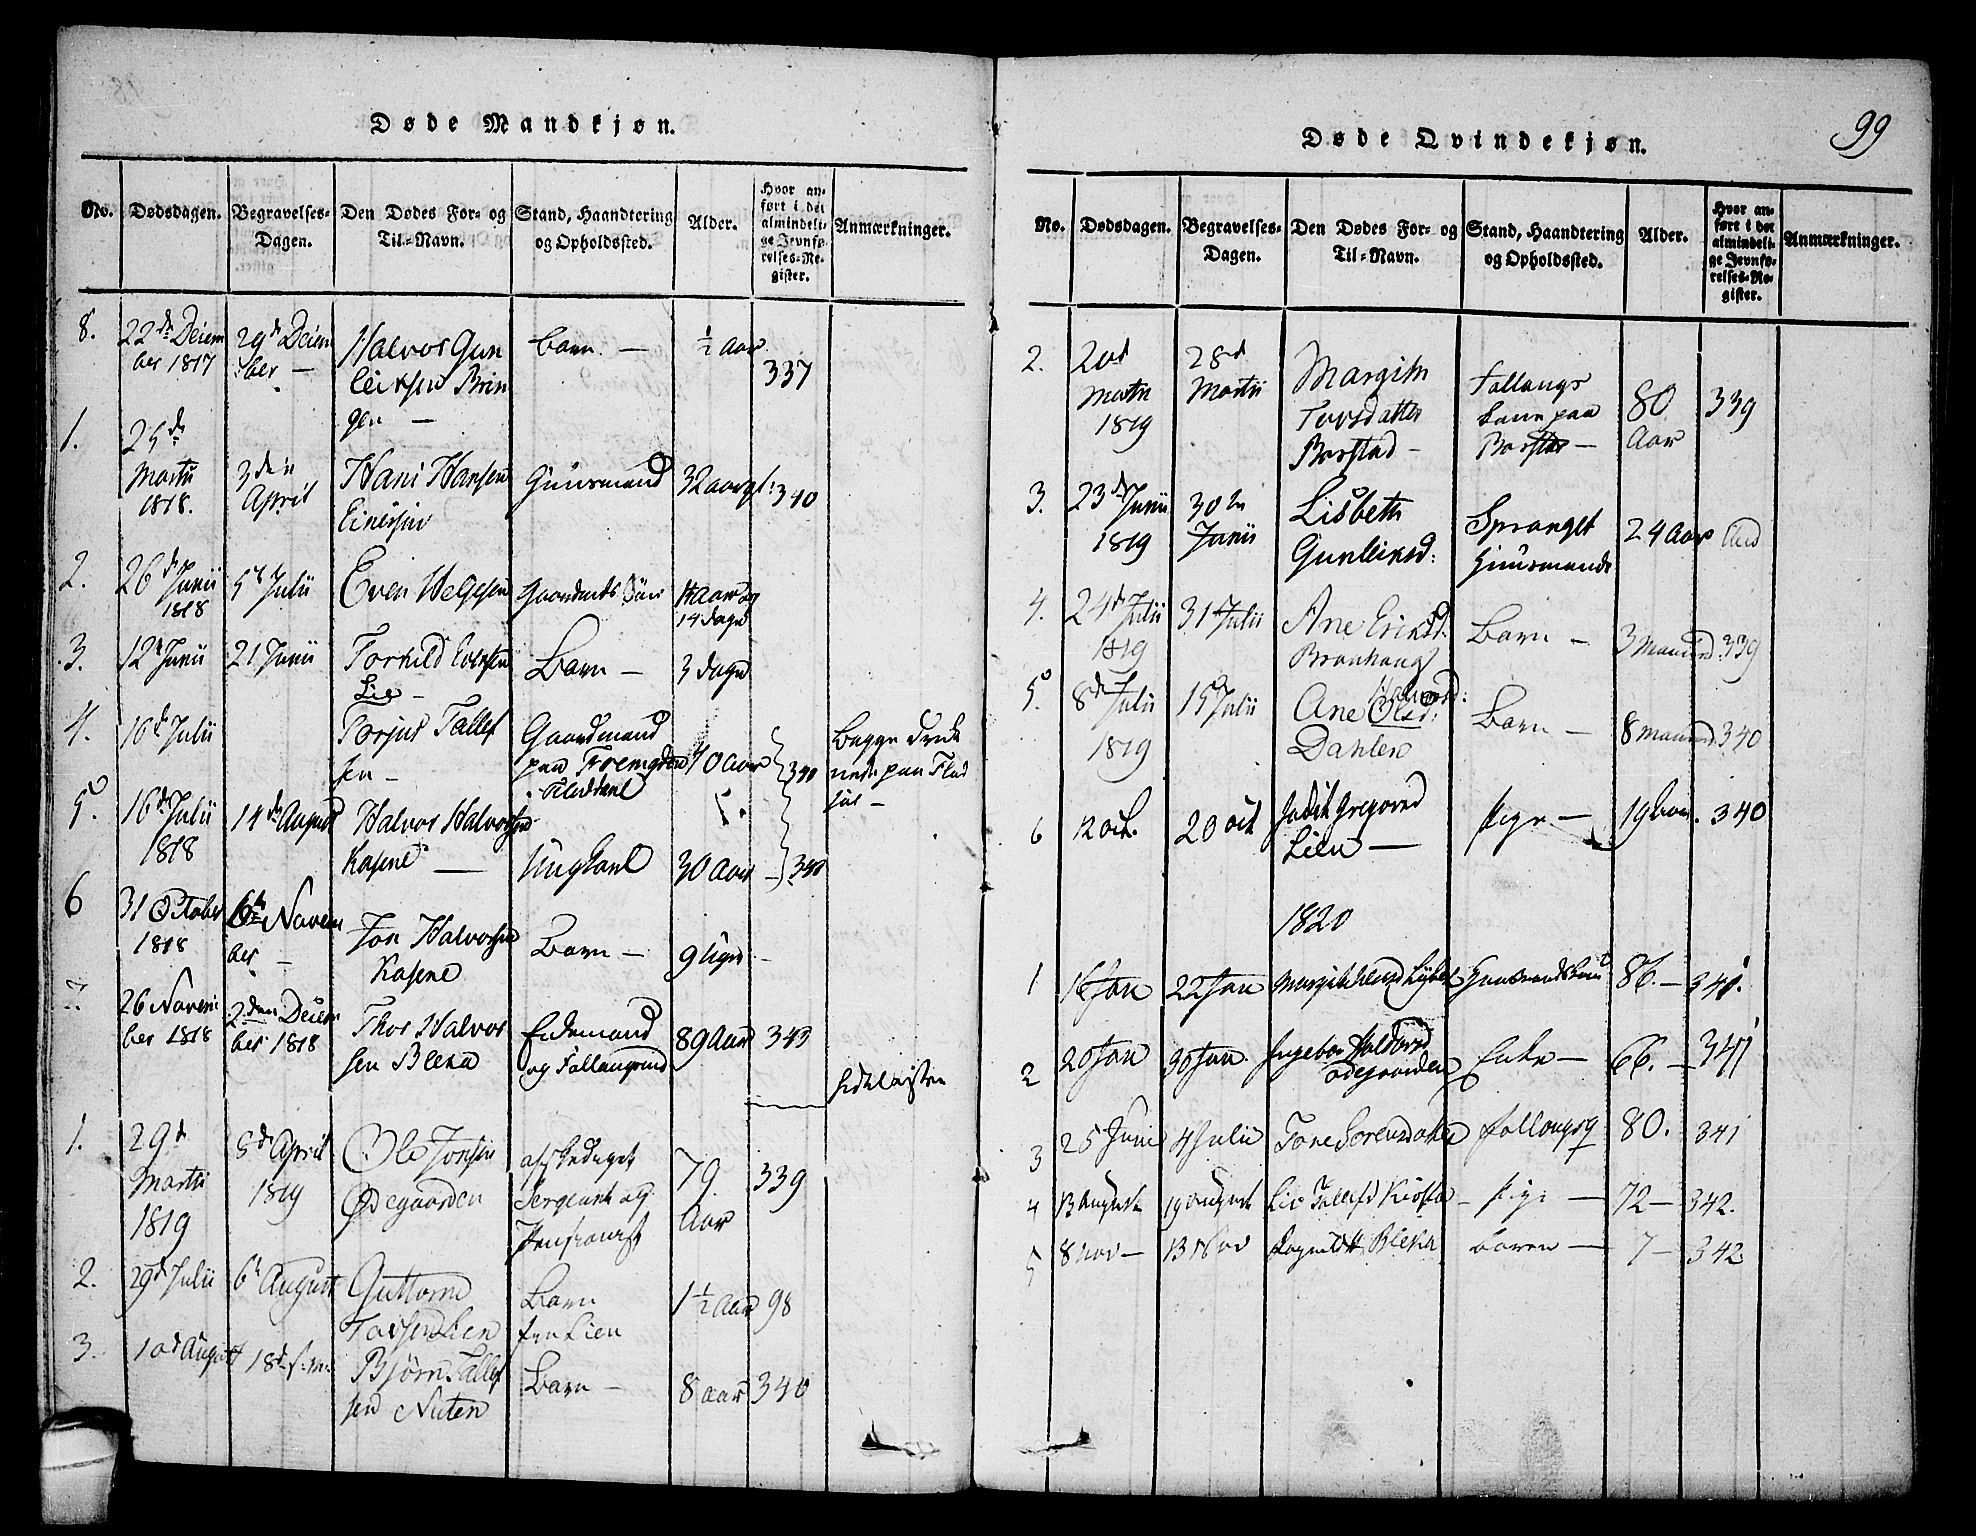 Døde Mandkjøn.
No.
Dødsdagen.
Begravelses-
Dagen.
Den Dødes For- og
Til-Navn.
Stand, Haandtering
og Opholdssted.
Alder.
Hvor an-
ført i det
almindeli-
ge Jevnfø-
relses-Re-
gister.
Anmærkninger.
8.
22de Decem
ber 1817
29de Decem
ber —
Halvor Gun
leiksen Brin
gen —
Barn. —
½ Aar
337
1.
25de
Martii
1818.
3den
April
Hans Hansen
Huusmand
32 aar
340
2.
26de Junii
1818
5te Julii
Even Helgesen
Gaardmands Søn
14 dage
3.
12te Junii
21 Junii
Torkild Evensen
Lie —
Barn —
3 dage
4.
16de Julii
Torjus Tallef
sen —
Gaardmand
paa
40 aar
340
Begge druk
nede paa
5.
16de Julii
1818
14de August
Halvor Halvorsen
Kasene —
Ungkarl
30 Aar
340
6
31 October
1818
6te Novem
ber —
Jon Halvorsen
Kasene
Barn —
9 Uger
7.
26 Novem
ber 1818
2den Decem
ber 1818
Thor Halvor
sen Bleka
Enkemand
og Follaugsmand
89 Aar
343
sidste
1.
29de
Martii
1819
8de April
1819
Ole Jonsen
Ødegaarden
afskediget
Sergeant og
Pensionist
79.
Aar
339
2.
29de Julii
6te August
Guttorm
Torsen Lien
Barn
fra Lien
1½ Aar
98
3.
10de August
18de
Bjørn Tallef
sen Nuten
Barn —
8 aar
340
Døde Qvindekjøn.
99
No.
Dødsdagen.
Begravelses-
Dagen.
Den Dødes For- og
Til-Navn.
Stand, Haandtering
og Opholdssted.
Alder.
Hvor an-
ført i det
almindeli-
ge Jevnfø-
relses-Re-
gister.
Anmærkninger.
2.
20d
Martii
1819
28d
Martii
Margith
Torsdatter
Borstad —
Follaugs
kone paa
Borstad —
80
Aar
339
3.
23de Junii
1819
30te
Junii
Lisbeth
Gunleiksd:
Huusmands
24 Aar
4.
24de Julii
1819
31 Julii
Ane Eriksd.
Barn —
3 Maaned
339
5
8de Julii
1819
15 Julii
Halvorsd:
Ane Olsd:
Dahlen
Barn —
8 Maaned
340
6
12 oct.
20 oct
Judith Gregorsd
Lien —
Pige —
19
340
1820
1
16 Jan
22 Jan
Margith
Huusmandskone
86. —
341.
2
20 Jan
30 Jan.
Ingebor Haldorsd
ødegaarden
Enke —
66. —
341
3
25 Junii
4 Julii
Tone Sorensdatter
follaugsq
80.
341
4
13 August
19 August
Liv Tallefsd
Pige —
72 —
342.
5
8 nov —
13 Nov
Ragnild H Bleka
barn —
7 —
342